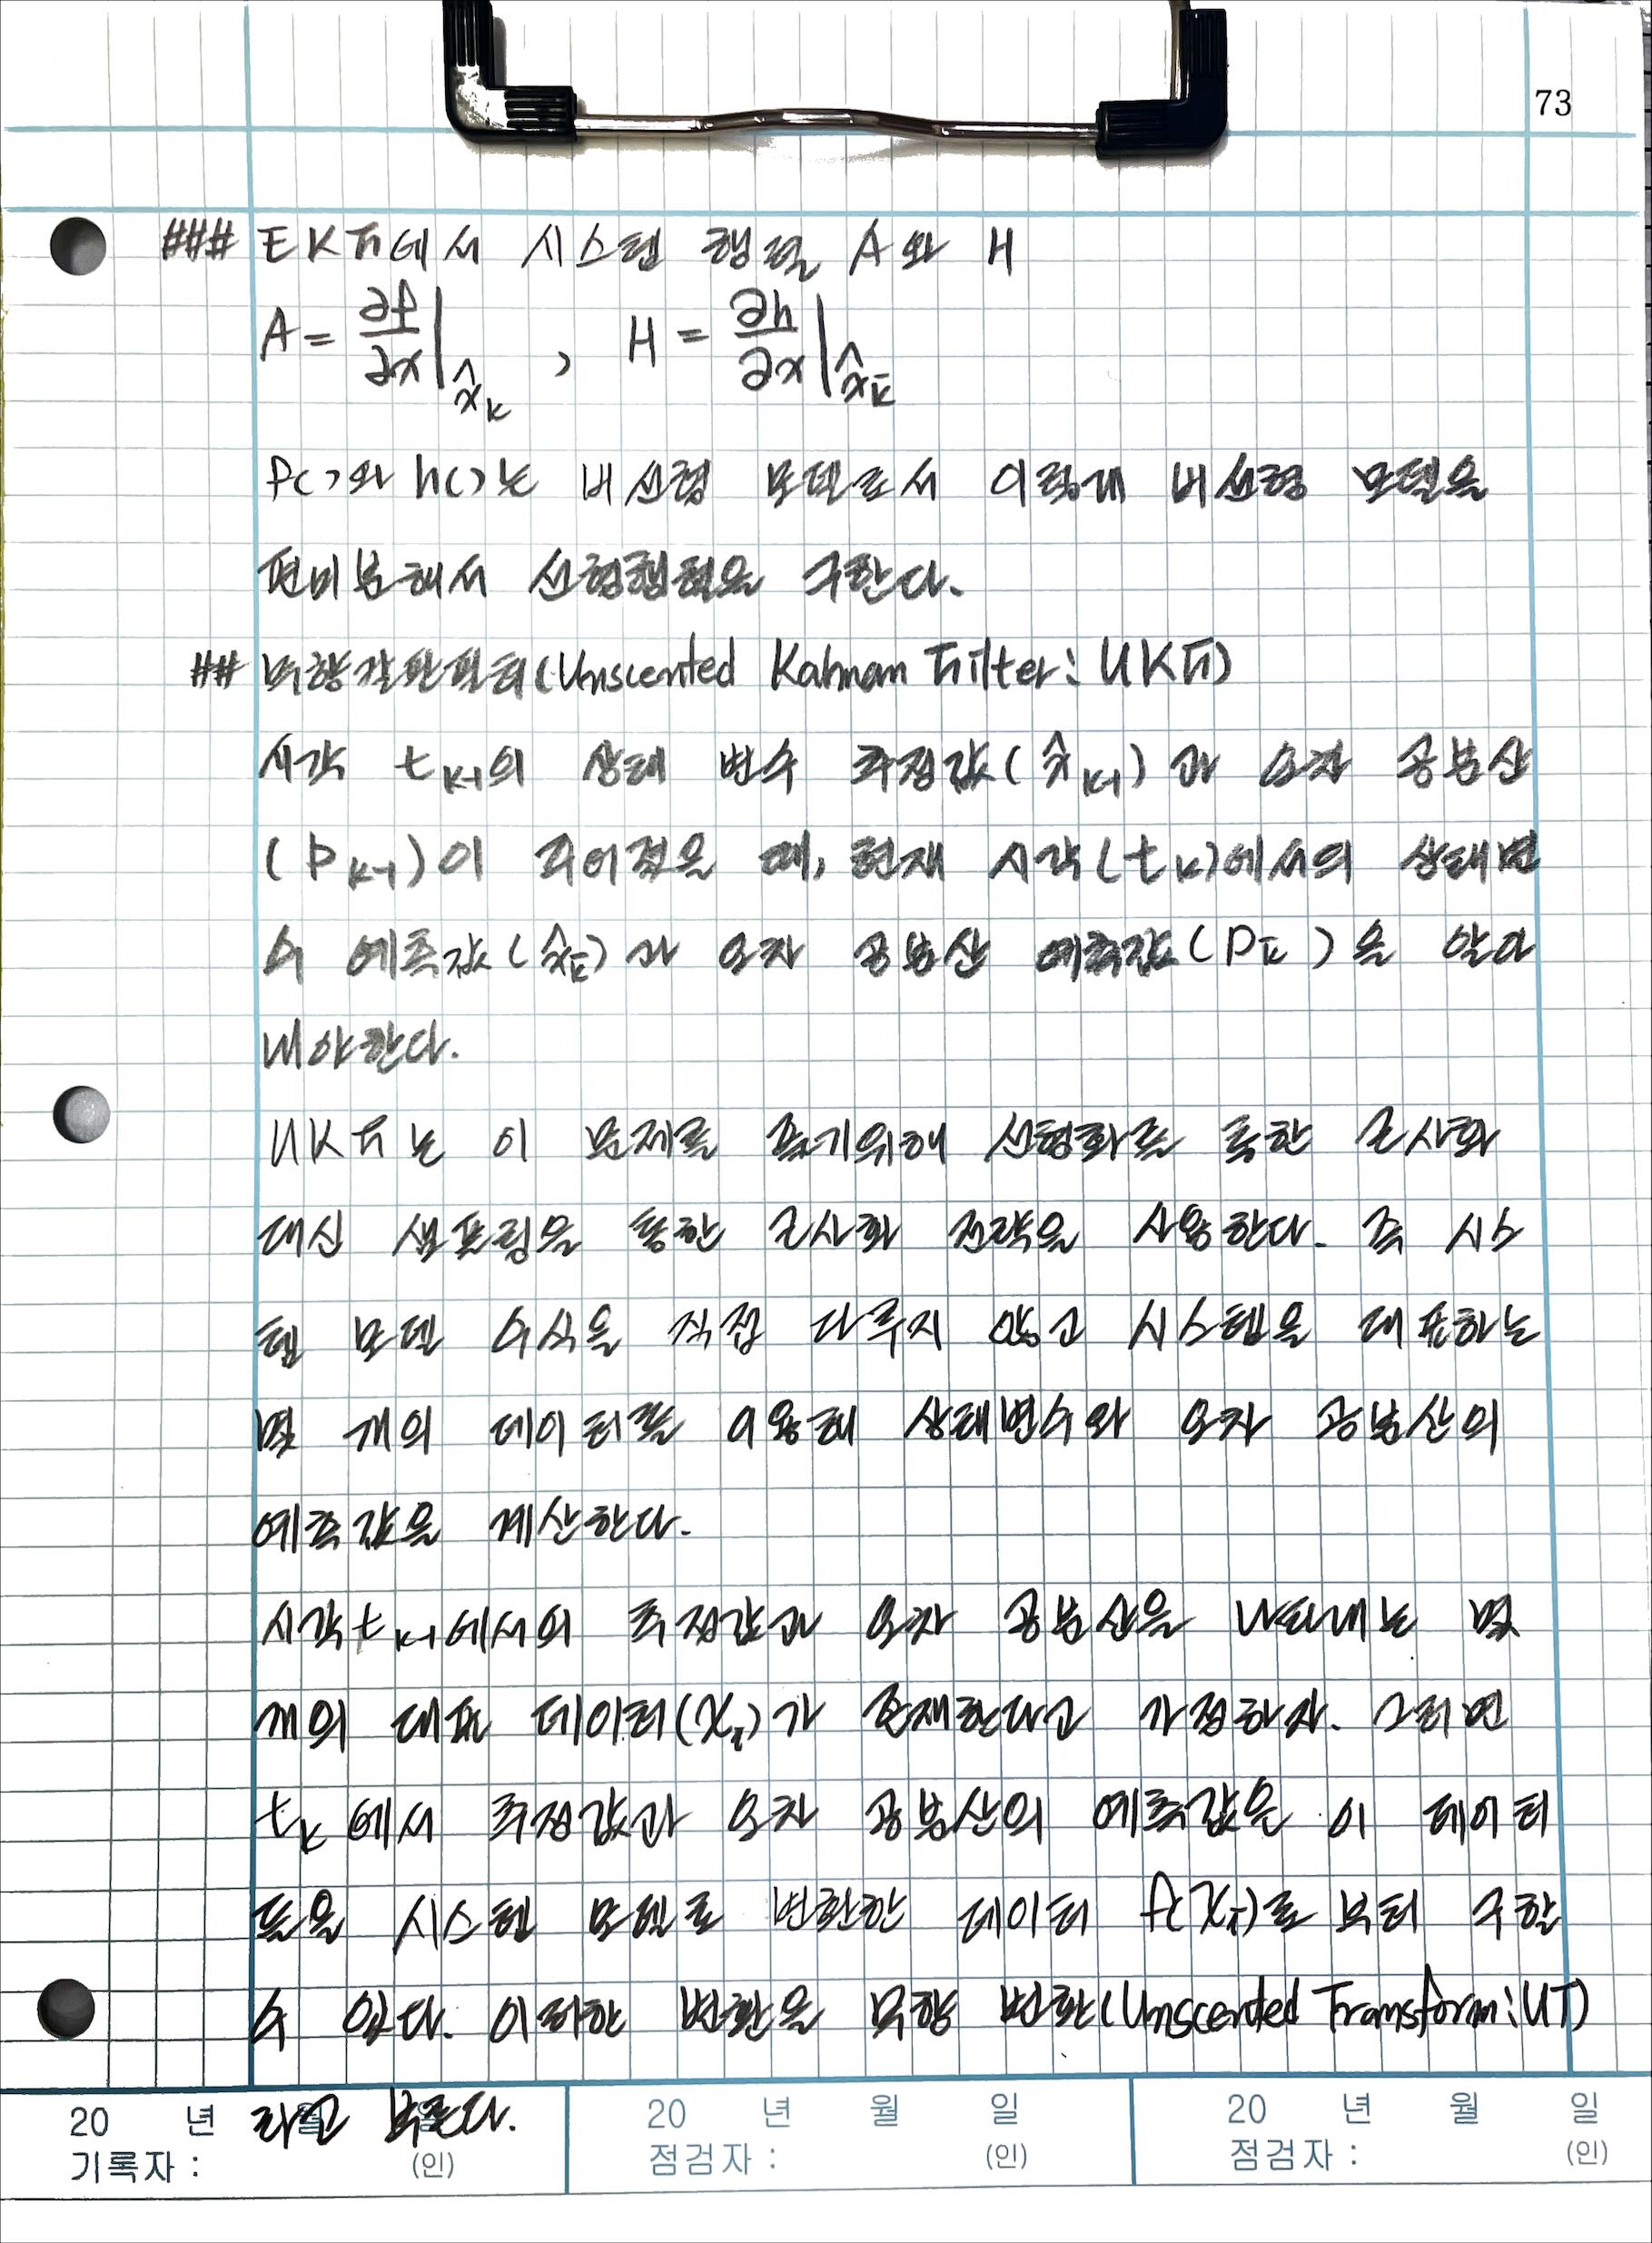 73
### EKF에서 시스템 행렬 A와 H
A = ∂f/∂x |x̂ₖ , H = ∂h/∂x |x̂ₖ⁻
f()와 h()는 비선형 모델로서 이렇게 비선형 모델을
편미분해서 선형행렬을 구한다.
## 무향칼만필터(Unscented Kalman Filter: UKF)
시각 tₖ₋₁의 상태 변수 추정값(x̂ₖ₋₁)과 오차 공분산
(Pₖ₋₁)이 주어졌을 때, 현재 시각(tₖ)에서의 상태변
수 예측값(x̂ₖ⁻)과 오차 공분산 예측값(Pₖ⁻)을 알아
내야한다.
UKF는 이 문제를 풀기위해 선형화를 통한 근사화
대신 샘플링을 통한 근사화 전략을 사용한다. 즉 시스
템 모델 수식을 직접 다루지 않고 시스템을 대표하는
몇 개의 데이터를 이용해 상태변수와 오차 공분산의
예측값을 계산한다.
시각 tₖ₋₁에서의 추정값과 오차 공분산을 나타내는 몇
개의 대표 데이터(χᵢ)가 존재한다고 가정하자. 그러면
tₖ에서 추정값과 오차 공분산의 예측값은 이 데이터
들을 시스템 모델로 변환한 데이터 f(χᵢ)로 부터 구할
수 있다. 이러한 변환을 무향 변환(Unscented Transform: UT)
라고 부른다.
20 년 월 일 20 년 월 일 20 년 월 일
기록자 : (인) 점검자 : (인) 점검자 : (인)